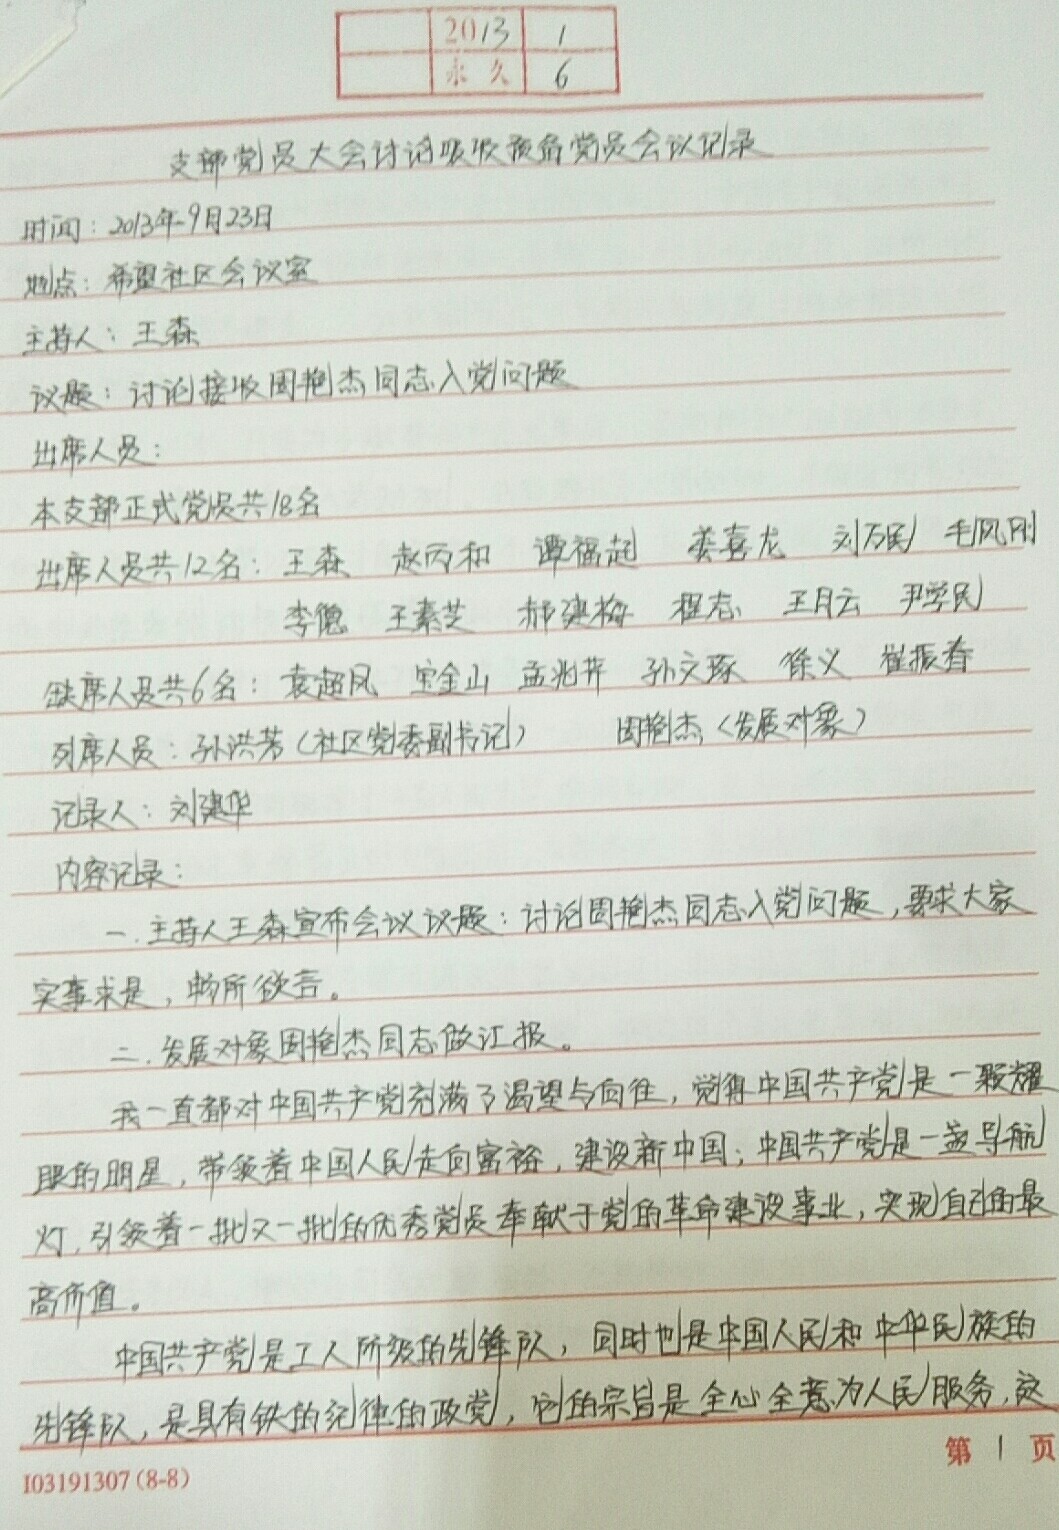 2013 1
永久 6
支部党员大会讨论吸收预备党员会议记录
时间：2013年9月23日
地点：希望社区会议室
主持人：王森
议题：讨论接收周艳杰同志入党问题
出席人员：
本支部正式党员共18名
出席人员共12名：王森 赵丙和 谭福起 娄喜龙 刘万民 毛凤刚
李德 王素芝 郝建梅 程志 王月云 尹学民
缺席人员共6名：袁超凤 宝金山 孟兆芹 孙文琢 徐义 崔振春
列席人员：孙洪芳（社区党委副书记） 周艳杰（发展对象）
记录人：刘建华
内容记录：
一.主持人王森宣布会议议题：讨论周艳杰同志入党问题，要求大家
实事求是，畅所欲言。
二.发展对象周艳杰同志做汇报。
我一直都对中国共产党充满了渴望与向往，觉得中国共产党是一颗耀
眼的明星，带领着中国人民走向富裕，建设新中国；中国共产党是一盏导航
灯，引领着一批又一批的优秀党员奉献于党的革命建设事业，实现自己的最
高价值。
中国共产党是工人阶级的先锋队，同时也是中国人民和中华民族的
先锋队，是具有铁的纪律的政党，它的宗旨是全心全意为人民服务，这
第1页
I03191307(8-8)